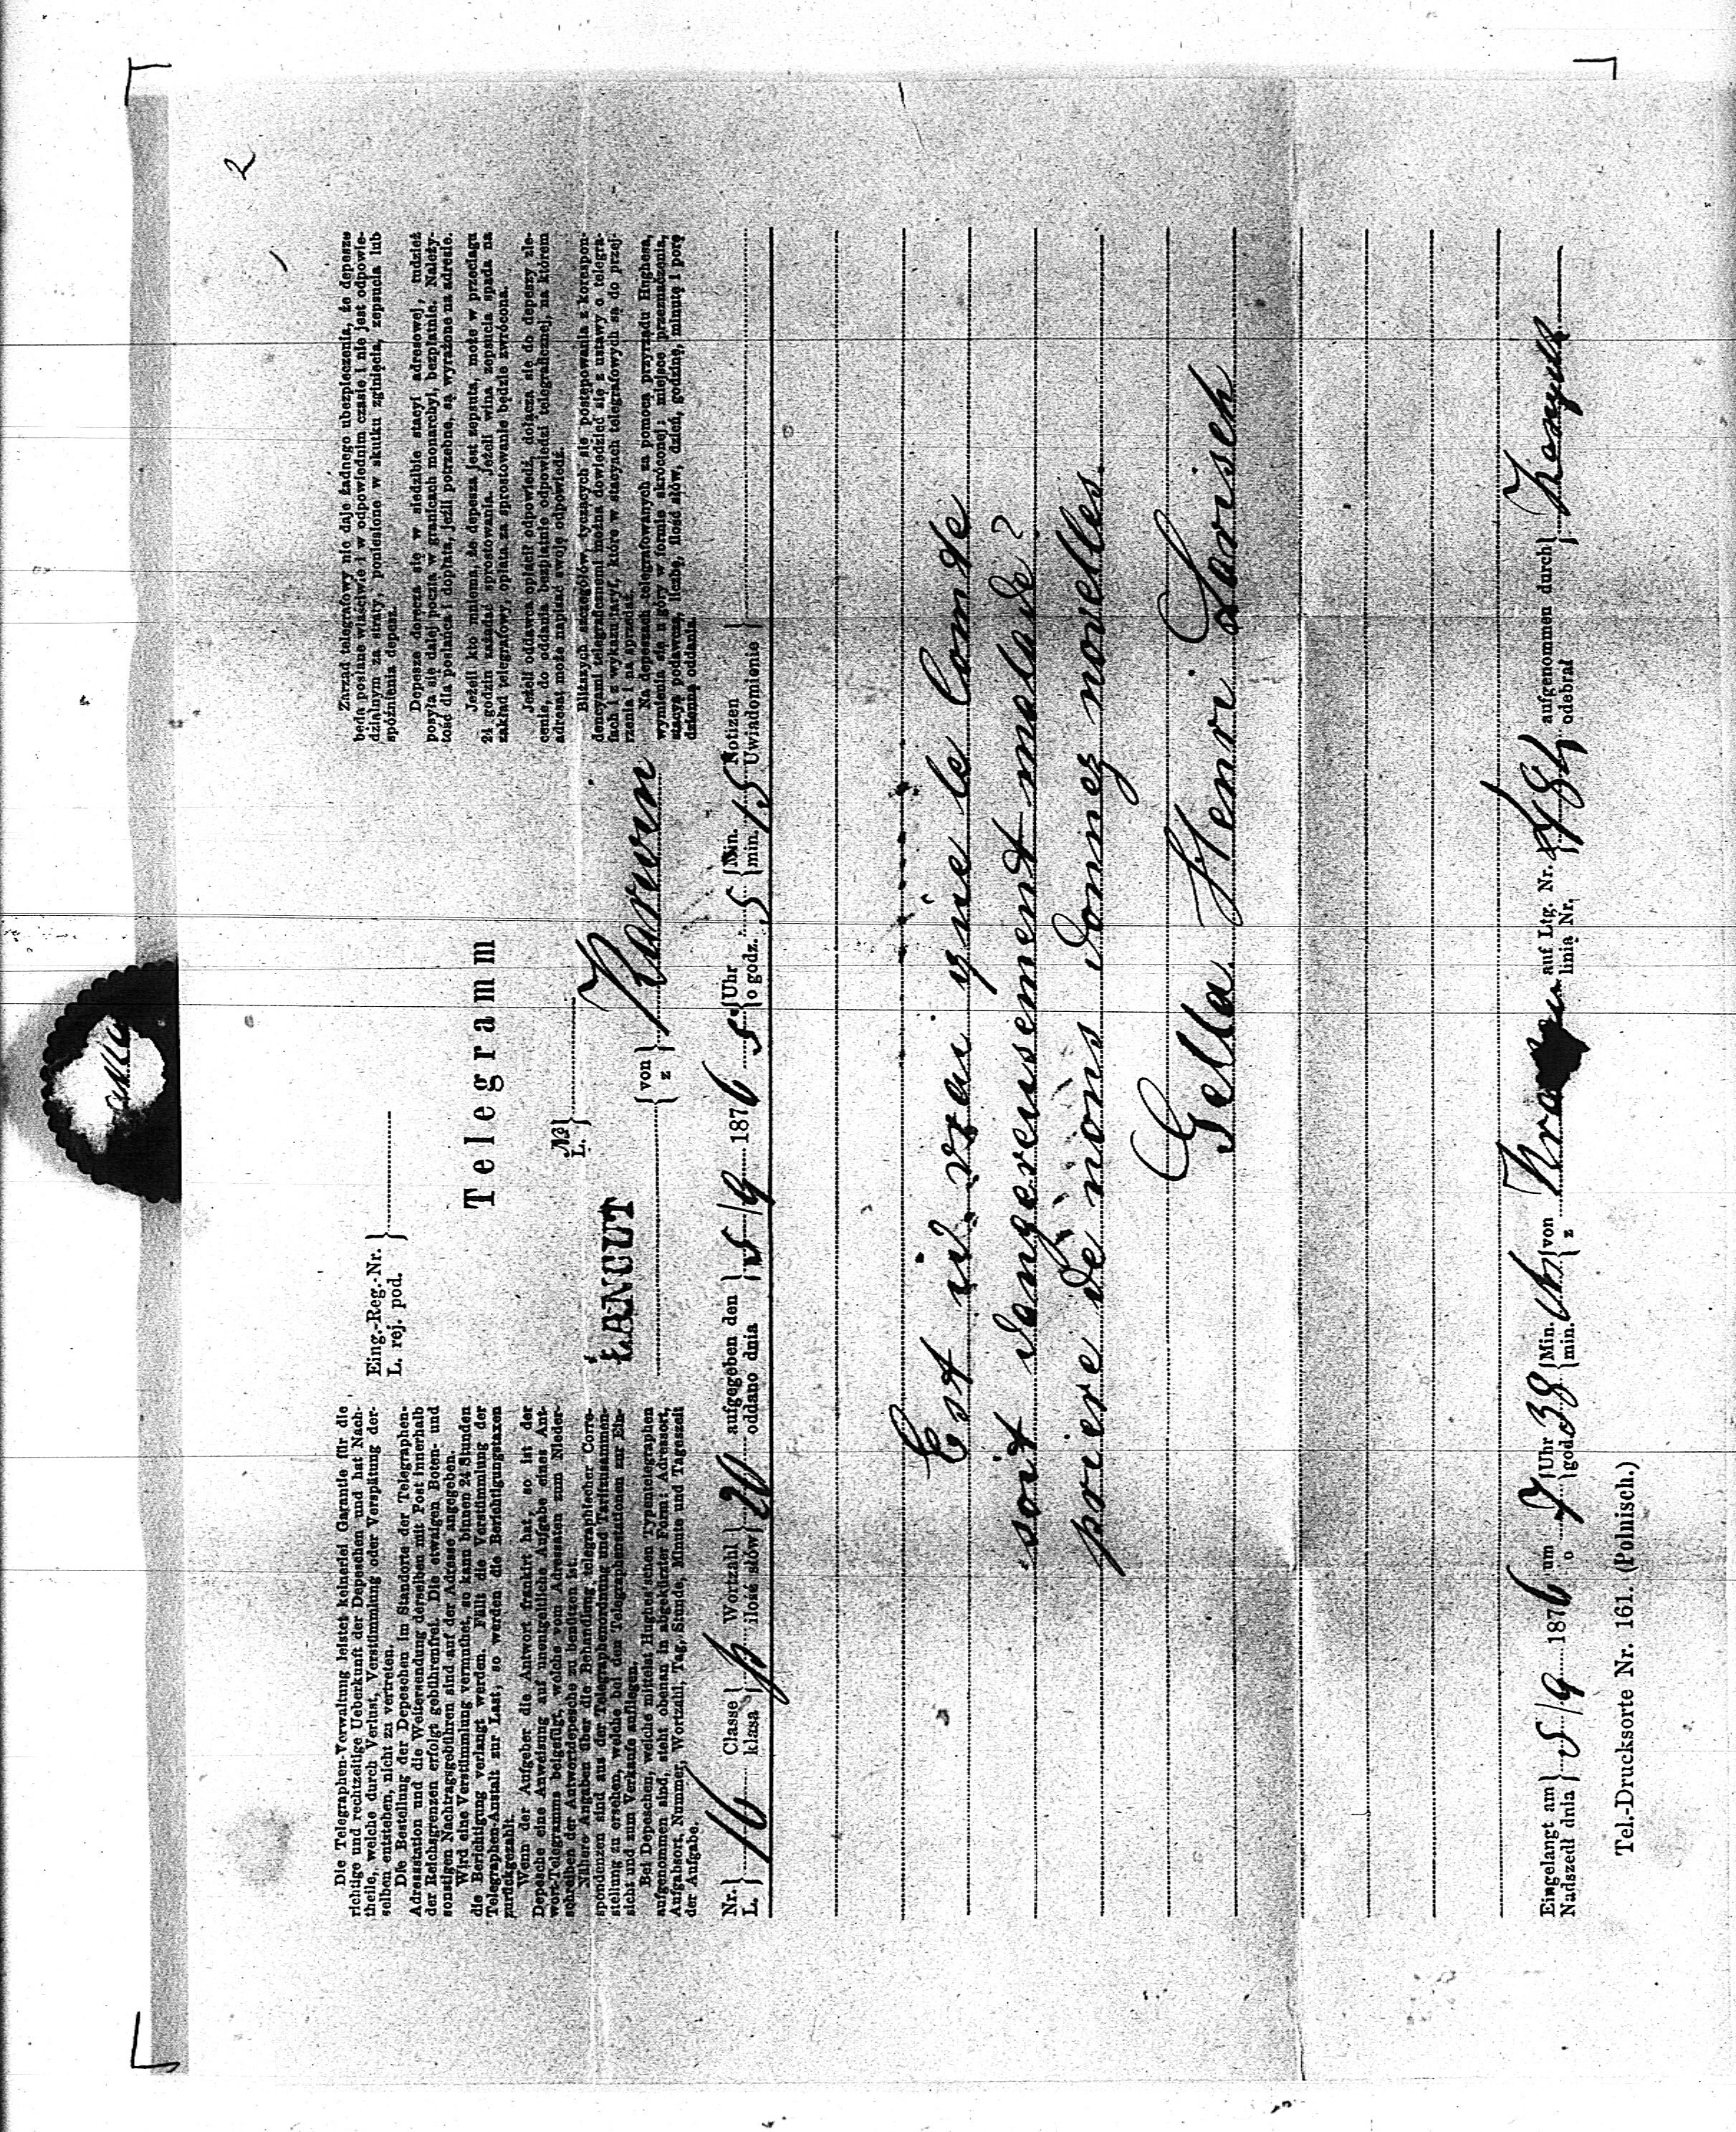 2
Eing.-Reg.-Nr.
L. rej. pod.
Die Telegraphen-Verwaltung leistet keinerlei Garantie für die
richtige und rechtzeitige Ueberkunft der Depeschen und hat Nach-
theile, welche durch Verlust, Verstümmlung oder Verspätung der-
selben entstehen, nicht zu vertreten.
Die Bestellung der Depeschen im Standorte der Telegraphen-
Adressstation und die Weitersendung derselben mit Post innerhalb
der Reichsgrenzen erfolgt gebührenfrei. Die etwaigen Boten- und
sonstigen Nachtragsgebühren sind auf der Adresse angegeben.
Wird eine Verstümmlung vermuthet, so kann binnen 24 Stunden
die Berichtigung verlangt werden. Fällt die Verstümmlung der
Telegraphen-Anstalt zur Last, so werden die Berichtigungstaxen
zurückgezahlt.
Wenn der Aufgeber die Antwort frankirt hat, so ist der
Depesche eine Anweisung auf unentgeltliche Aufgabe eines Ant-
wort-Telegramms beigefügt, welche vom Adressaten zum Nieder-
schreiben der Antwortdepesche zu benützen ist.
Nähere Angaben über die Behandlung telegraphischer Corre-
spondenzen sind aus der Telegraphenordnung und Tarifzusammen-
stellung zu ersehen, welche bei den Telegraphenstationen zur Ein-
sicht und zum Verkaufe aufliegen.
Bei Depeschen, welche mittelst Hughes'schen Typentelegraphen
aufgenommen sind, steht obenan in abgekürzter Form: Adressort,
Aufgabsort, Nummer, Wortzahl, Tag, Stunde, Minute und Tageszeit
der Aufgabe.
Telegramm
№
L.
ŁAŃCUT
von
z
Karwin
Zarząd telegrafowy nie daje żadnego ubezpieczenia, że depesze
będą posłane właściwie i w odpowiednim czasie i nie jest odpowie-
dzialnym za straty, poniesione w skutku zginięcia, zepsucia lub
spóźnienia depesz.
Depesze doręcza się w siedzibie stacyi adresowej, tudzież
posyła się dalej pocztą w granicach monarchyi, bezpłatnie. Należy-
tość dla posłańca i dopłata, jeźli potrzebne, są wyrażone na adresie.
Jeżeli kto mniema, że depesza jest zepsuta, może w przeciągu
24 godzin zażądać sprostowania. Jeżeli wina zepsucia spada na
zakład telegrafowy, opłata za sprostowanie będzie zwrócona.
Jeżeli oddawca opłacił odpowiedź, dołącza się do depeszy zle-
cenie, do oddania bezpłatnie odpowiedzi telegraficznej, na którem
adresat może napisać swoję odpowiedź.
Bliższych szczegółów, tyczących się postępowania z korespon-
dencyami telegraficznemi można dowiedzieć się z ustawy o telegra-
fach i z wykazu taryf, które w stacyach telegrafowych są do przej-
rzenia i na sprzedaż.
Na depeszach telegrafowanych za pomocą przyrządu Hughesa,
wymienia się z góry w formie skróconej: miejsce przeznaczenia,
stacyę podawczą, liczbę, ilość słów, dzień, godzinę, minutę i porę
dzienną oddania.
Nr. 16 Classe Wortzahl 20 aufgegeben den 5/9 1876 Uhr 5 Min. 15 Notizen
L. klasa ilość słów oddano dnia o godz. min. Uwiadomienie
Est il vrai que le Comte
soit dangereusement malade?
priere de nous donnez novelles
Gella Henri Larisch
Eingelangt am 5/9 1876 um 7 Uhr 38 Min. von auf Ltg. Nr. 484 aufgenommen durch
Nadszedł dnia o god. min. z linią Nr. odebrał
Tel.-Drucksorte Nr. 161. (Polnisch.)